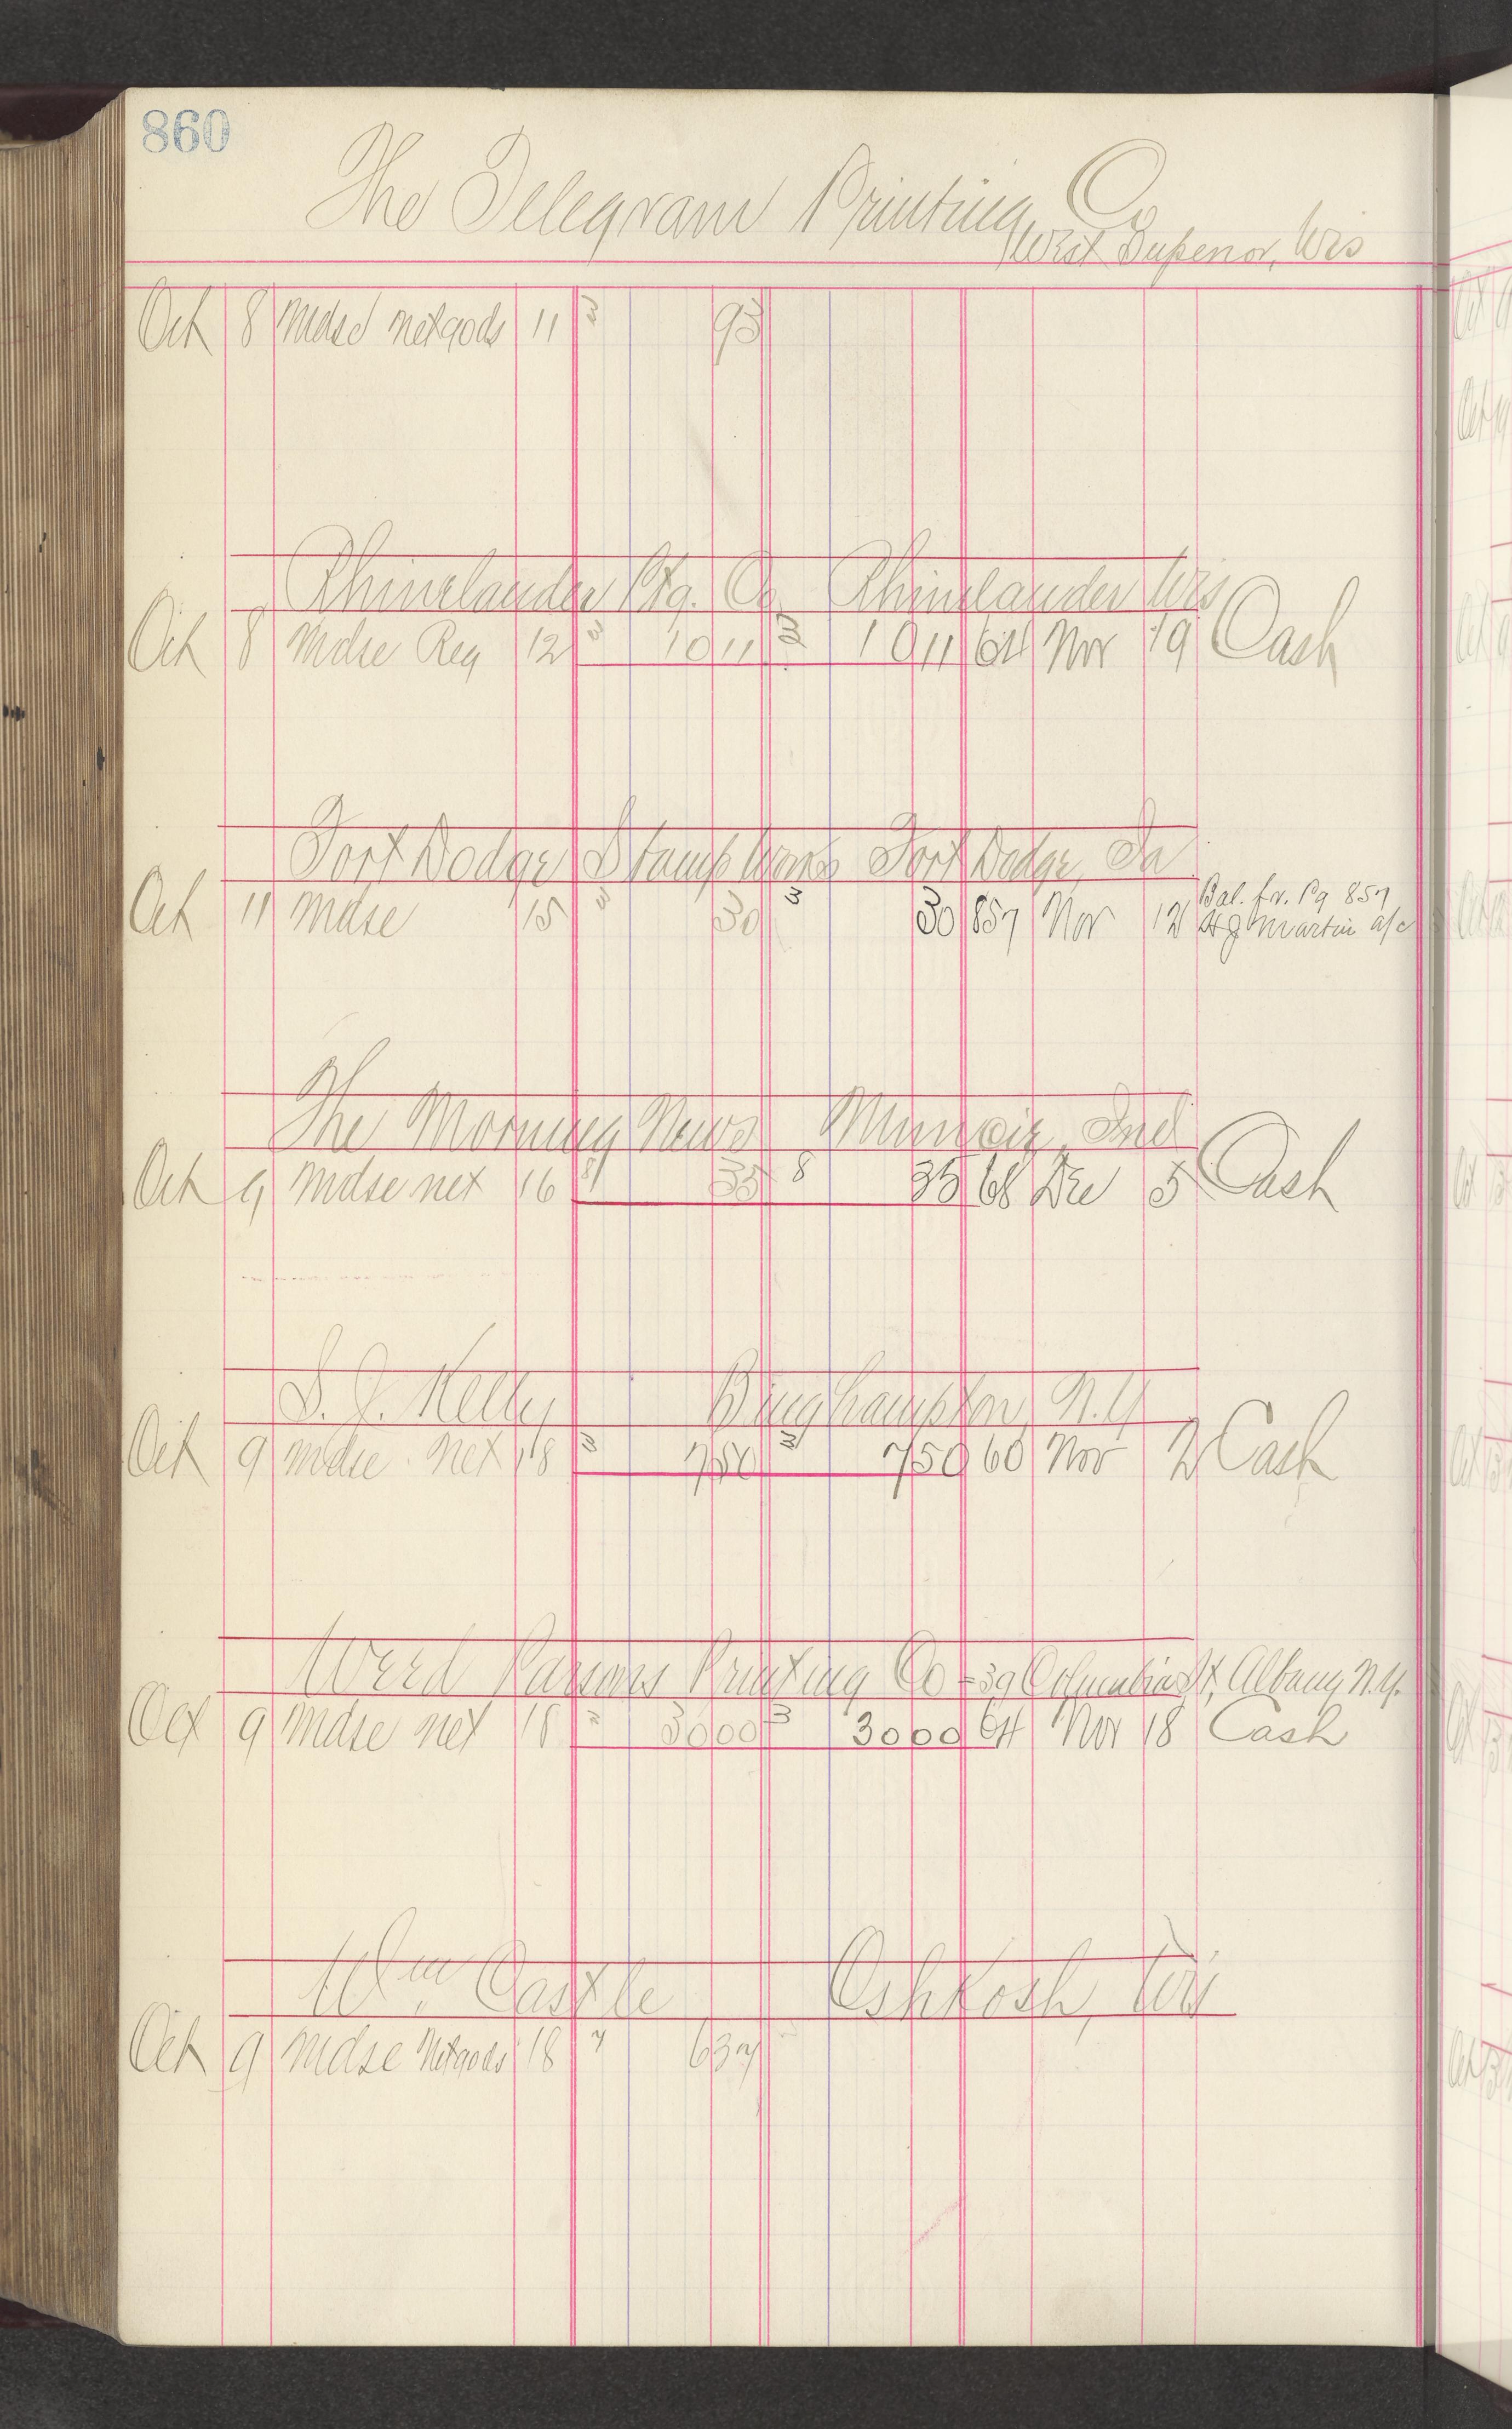 860
The Telegram Printing Co
West Superior, Wis
Oct 8 Mdse net gods 11 3 93
Rhinelander Ptg. Co Rhinelander Wis
Oct 8 Mdse Reg 12 3 10 11 3 10 11 64 Nov 19 Cash
Fort Dodge Stamp Works Fort Dodge, Ia
Bal. fr. Pg 857
Oct 11 Mdse 15 3 30 3 30 857 Nov 12 H J Martin a/c
The Morning News Muncie, Ind
Oct 9 Mdse net 16 8 35 8 35 68 Dec 5 Cash
S. J. Kelly Binghampton, N.Y
Oct 9 Mdse net 18 3 7 50 3 7 50 60 Nov 2 Cash
Weed Parsons Printing Co - 39 Columbia St, Albany N.Y.
Oct 9 Mdse net 18 3 30 00 3 30 00 64 Nov 18 Cash
Wm. Castle Oshkosh, Wis
Oct 9 Mdse Net gods 18 7 6 37